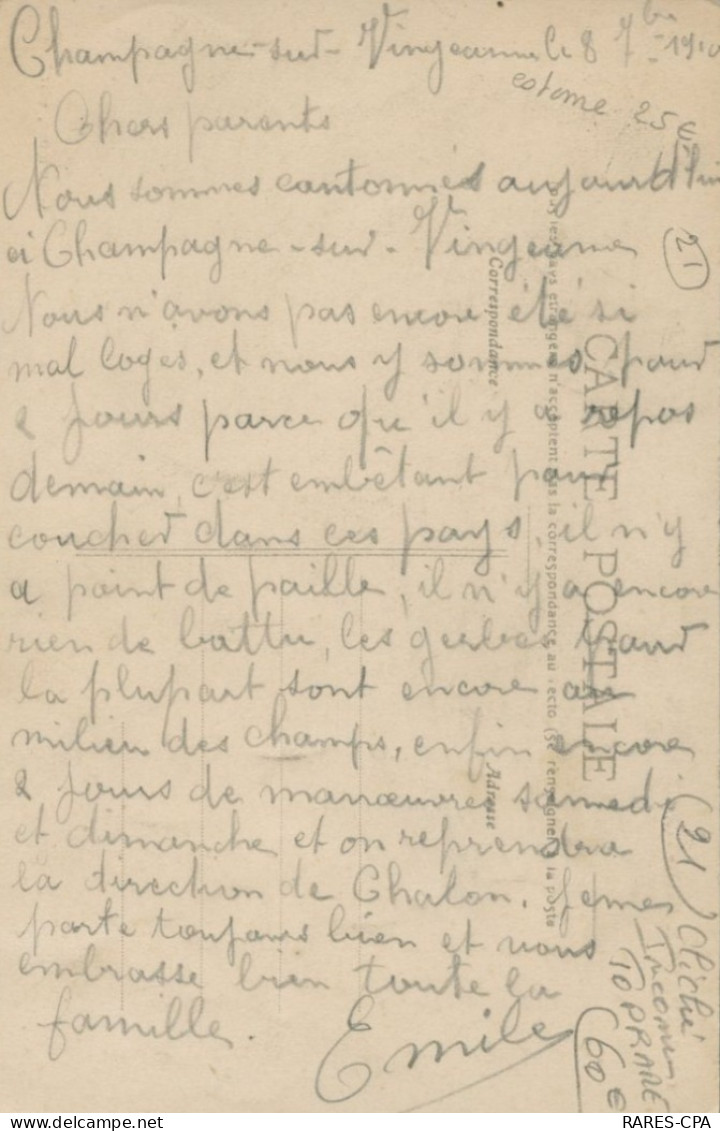 Champagne-sur-Vingeanne le 8 7bre 1910
estome 25 c
Chers parents
Nous sommes cantonnés aujourd'hui
à Champagne-sur-Vingeanne
21
Nous n'avons pas encore été si
mal logés, et nous y sommes pour
2 jours parce qu'il y a repos
demain, c'est embêtant pour
coucher dans ces pays, il n'y
a point de paille, il n'y a encore
rien de battu, les gerbes quand
la plupart sont encore au
milieu des champs, enfin encore
2 jours de manœuvre samedi
et dimanche et on reprendra
la direction de Chalon. Je me
porte toujours bien et vous
embrasse bien toute la
famille.
Emile
CARTE POSTALE
pays étrangers n'acceptent pas la correspondance au recto (Se renseigner à la poste
Correspondance
Adresse
21
Cliché
Inconnu
TOPRARE
60 €
RARES-CPA